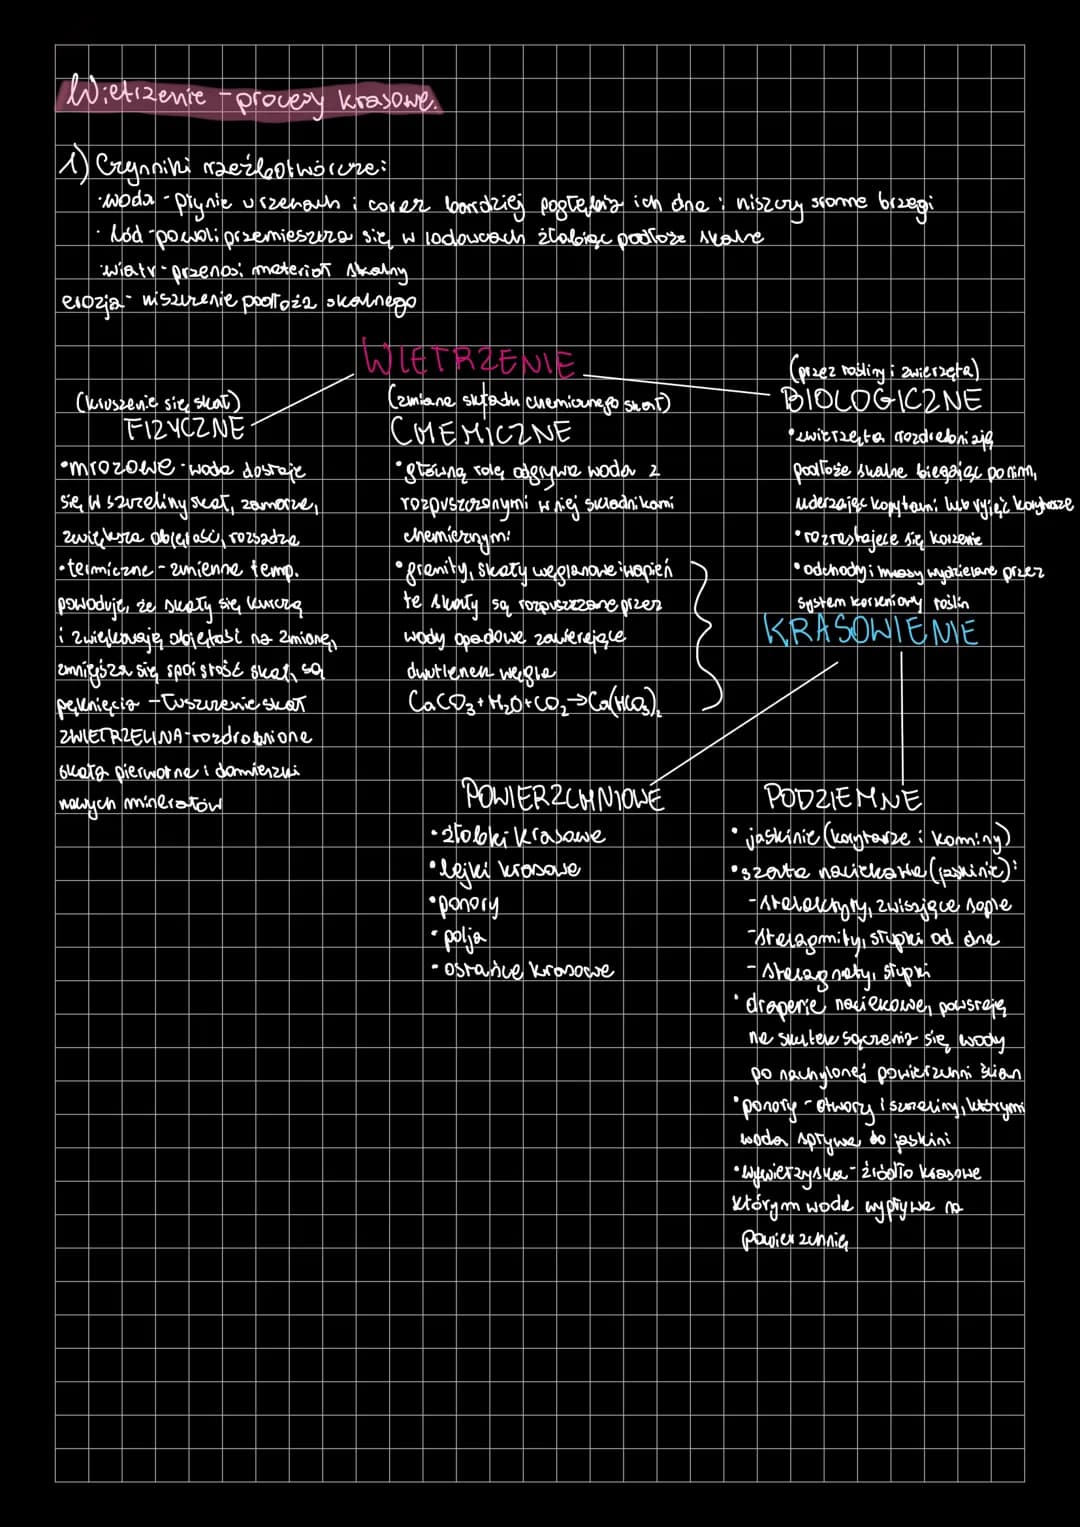 Wietrzenie - procesy krasowe.
1) Czynniki rzeźbotwórcze:
·woda - płynie w rzekach i coraz bardziej pogłębia ich dna i niszczy strome brzegi
· lód - powoli przemieszcza się w lodowcach żłobiąc podłoże skalne
·wiatr - przenosi materiał skalny
erozja - niszczenie podłoża skalnego
WIETRZENIE
(kruszenie się skał)
FIZYCZNE
•mrozowe - woda dostaje
się w szczeliny skał, zamarza,
zwiększa objętość, rozsadza
•termiczne - zmienna temp.
powoduje, że skały się kurczą
i zwiększają objętość na zmianę,
zmniejsza się spoistość skał, są
pęknięcia - łuszczenie skał
ZWIETRZELINA - rozdrobnione
skała pierwotna i domieszki
nowych minerałów
(zmiana składu chemicznego skał)
CHEMICZNE
•główną rolę odgrywa woda z
rozpuszczonymi w niej składnikami
chemicznymi
•granity, skały węglanowe i wapień
te skały są rozpuszczane przez
wody opadowe zawierające
dwutlenek węgla
CaCO₃ + H₂O + CO₂ → Ca(HCO₃)₂
(przez rośliny i zwierzęta)
BIOLOGICZNE
•zwierzęta rozdrabniają
podłoże skalne biegając po nim,
uderzając kopytami lub ryjąc korytarze
•rozrastające się korzenie
•odchody i kwasy wydzielane przez
system korzeniowy roślin
KRASOWIENIE
POWIERZCHNIOWE
•żłobki krasowe
•lejki krasowe
•ponory
•polja
•ostańce krasowe
PODZIEMNE
•jaskinie (korytarze i kominy)
•szata naciekowa (jaskinie):
-stalaktyty, zwisające sople
-stalagmity, słupki od dna
-stalagnaty, słupki
•draperie naciekowe, powstają
na skutek sączenia się wody
po nachylonej powierzchni ścian
•ponory - otwory i szczeliny, którymi
woda spływa do jaskini
•wywierzyska - źródło krasowe
którym woda wypływa na
powierzchnię